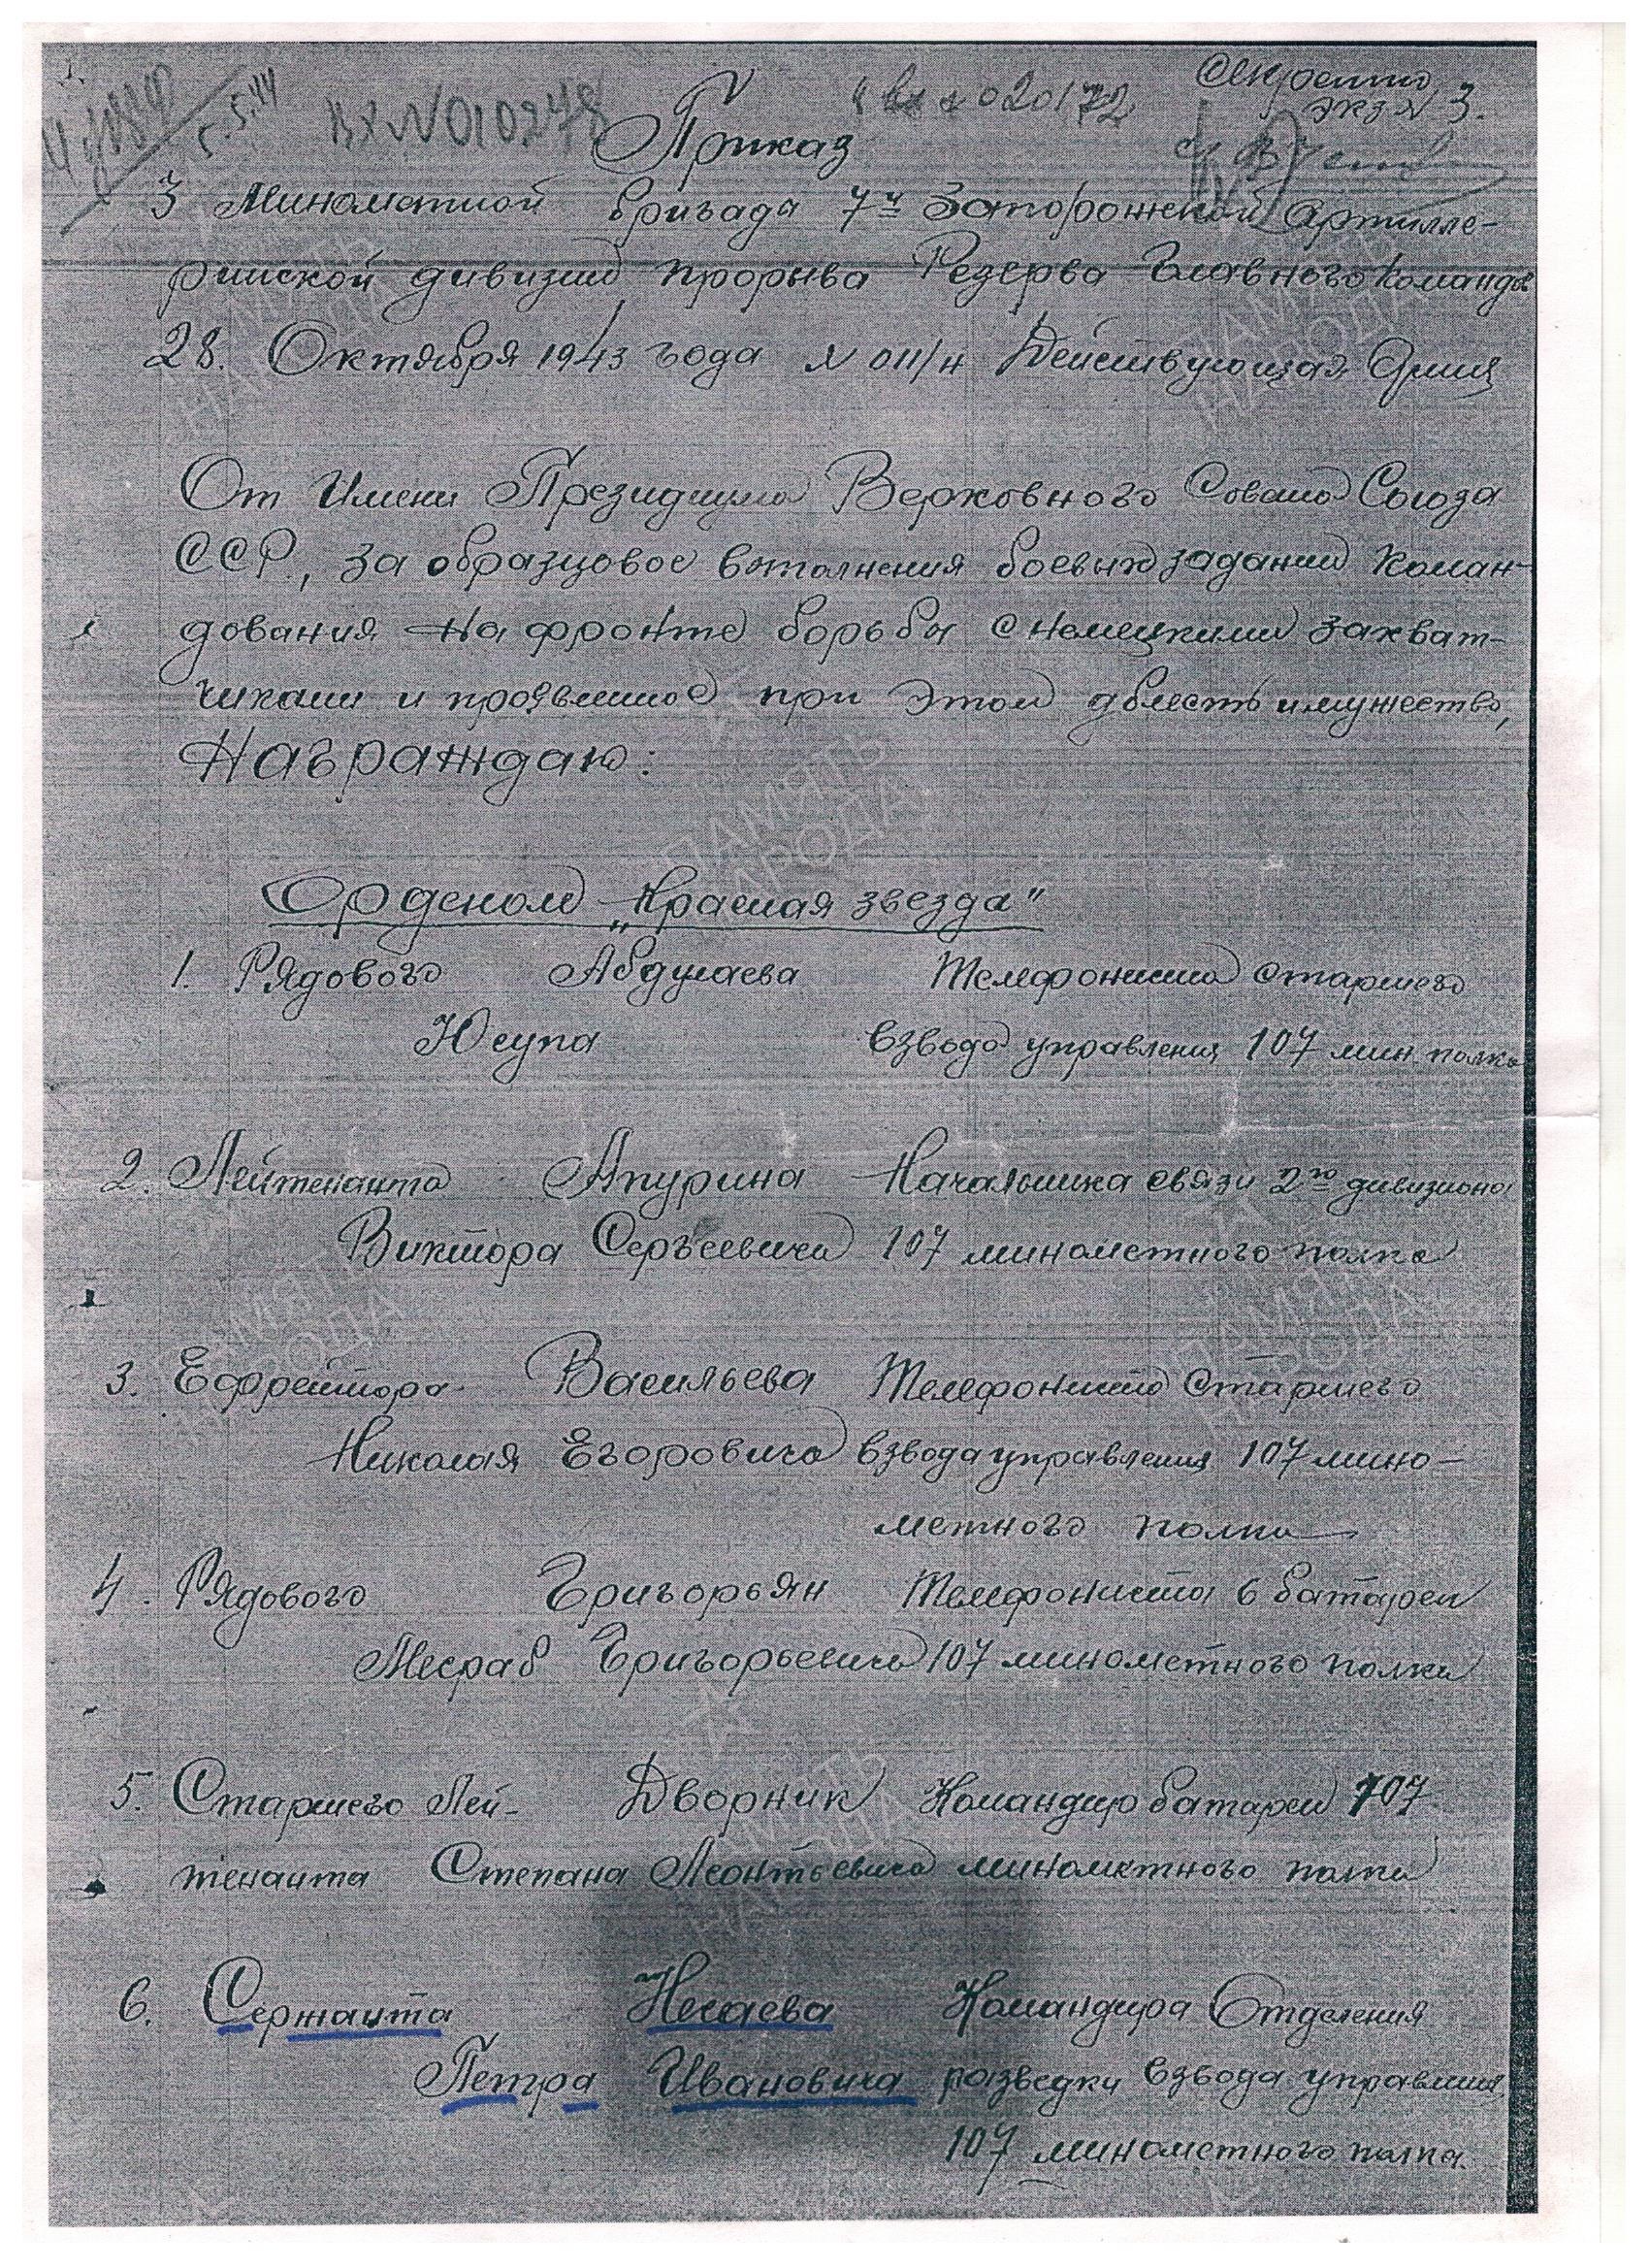 Секретно
экз N 3.
5.5.44
ВХ N 010278
Приказ
3 Минометной бригада 7й Запорожской Артилле-
рийской дивизии прорыва Резерва Главного Команд
28. Октября 1943 года N 011/н Действующая Армия
От Имени Президиума Верховного Совета Союза
ССР, за образцовое выполнения боевых заданий коман-
дования на фронте борьбы с немецкими захват-
чиками и проявленное при этом доблесть и мужество,
Награждаю:
Орденом „Красная звезда"
1. Рядового Абдулаева Телефониста старшего
Юсупа взвода управления 107 мин полка
2. Лейтенанта Апурина Начальника связи 2го дивизиона
Виктора Сергеевича 107 минометного полка
3. Ефрейтора Васильева Телефониста старшего
Николая Егоровича взвода управления 107 мино-
метного полка
4. Рядового Григорьян Телефониста 6 батареи
Месраб Григорьевича 107 минометного полка
5. Старшего Лей- Дворник Командир батареи 107
тенанта Степана Леонтьевича минометного полка
6. Сержанта Нечаева Командира Отделения
Петра Ивановича разведки взвода управления
107 минометного полка.
ПАМЯТЬ
НАРОДА